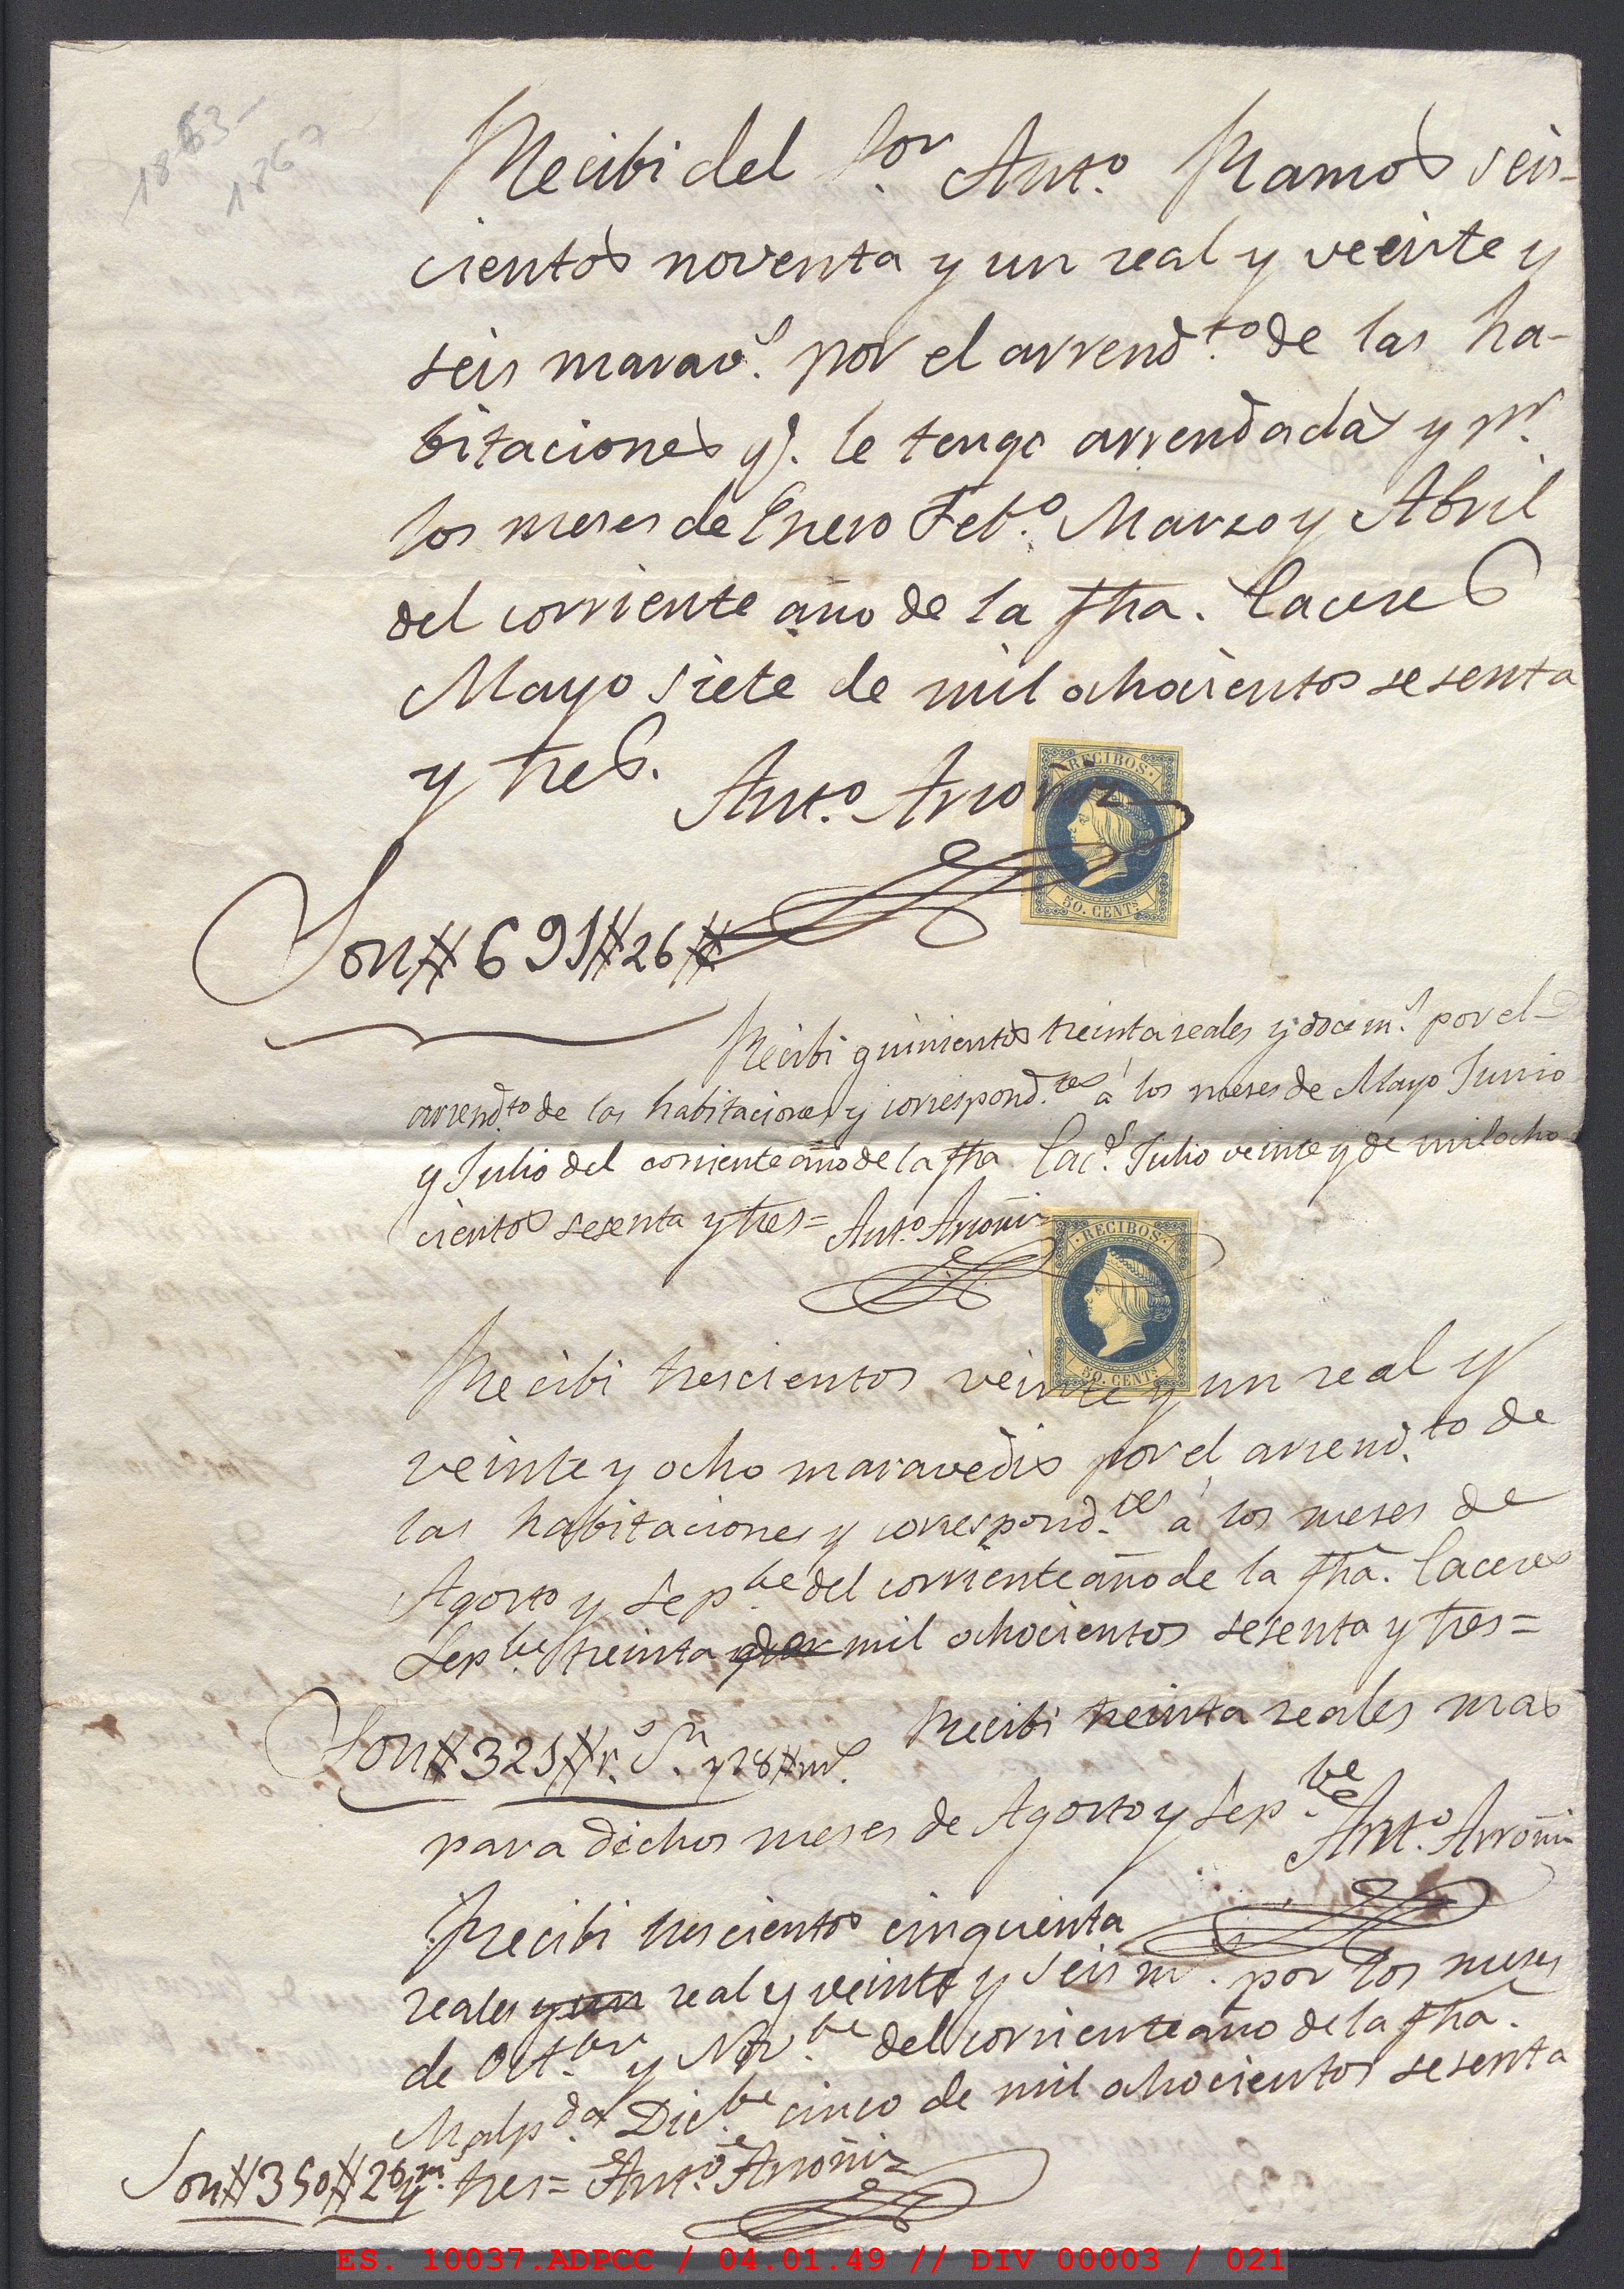 1863-
1867
Recibi del Sor. Anto. Ramos seis-
cientos noventa y un real y veeinte y
seis maravs. por el arrendto. de las ha-
bitaciones q. le tengo arrendadas y pr.
los meses de Enero Febo. Marzo y Abril
del corriente año de la fha. Caceres
Mayo siete de mil ochocientos sesenta
y tres.
Anto. Arroñiz
RECIBOS
50. CENTs
Son # 691 # 26 #
Recibi quinientos treinta reales y doce ms. por el
arrendto. de las habitaciones y correspondtes. á los meses de Mayo Junio
y Julio del corriente año de la fha. Cacs. Julio veinte y de mil ocho
cientos sesenta y tres = Anto. Arroñiz
RECIBOS
50. CENTs
Recibi trescientos veinte y un real y
veinte y ocho maravedis por el arrendto. de
las habitaciones y correspondtes. á los meses de
Agosto y Sepbe. del corriente año de la fha. Caceres
Sepbe. treinta de mil ochocientos sesenta y tres =
Recibi treinta reales mas
Son # 321 # rs. Vn. y 28 # ms.
para dichos meses de Agosto y Sepbe.
Anto. Arroñiz
Recibi trescientos cinquenta
reales y un real y veinte y seis ms. por los meses
de Octbre. y Novbe. del corriente año de la fha.
Malpda. Dicbe. cinco de mil ochocientos sesenta
y tres = Anto. Arroñiz
Son # 350 # 26 m.
ES. 10037.ADPCC / 04.01.49 // DIV 00003 / 021